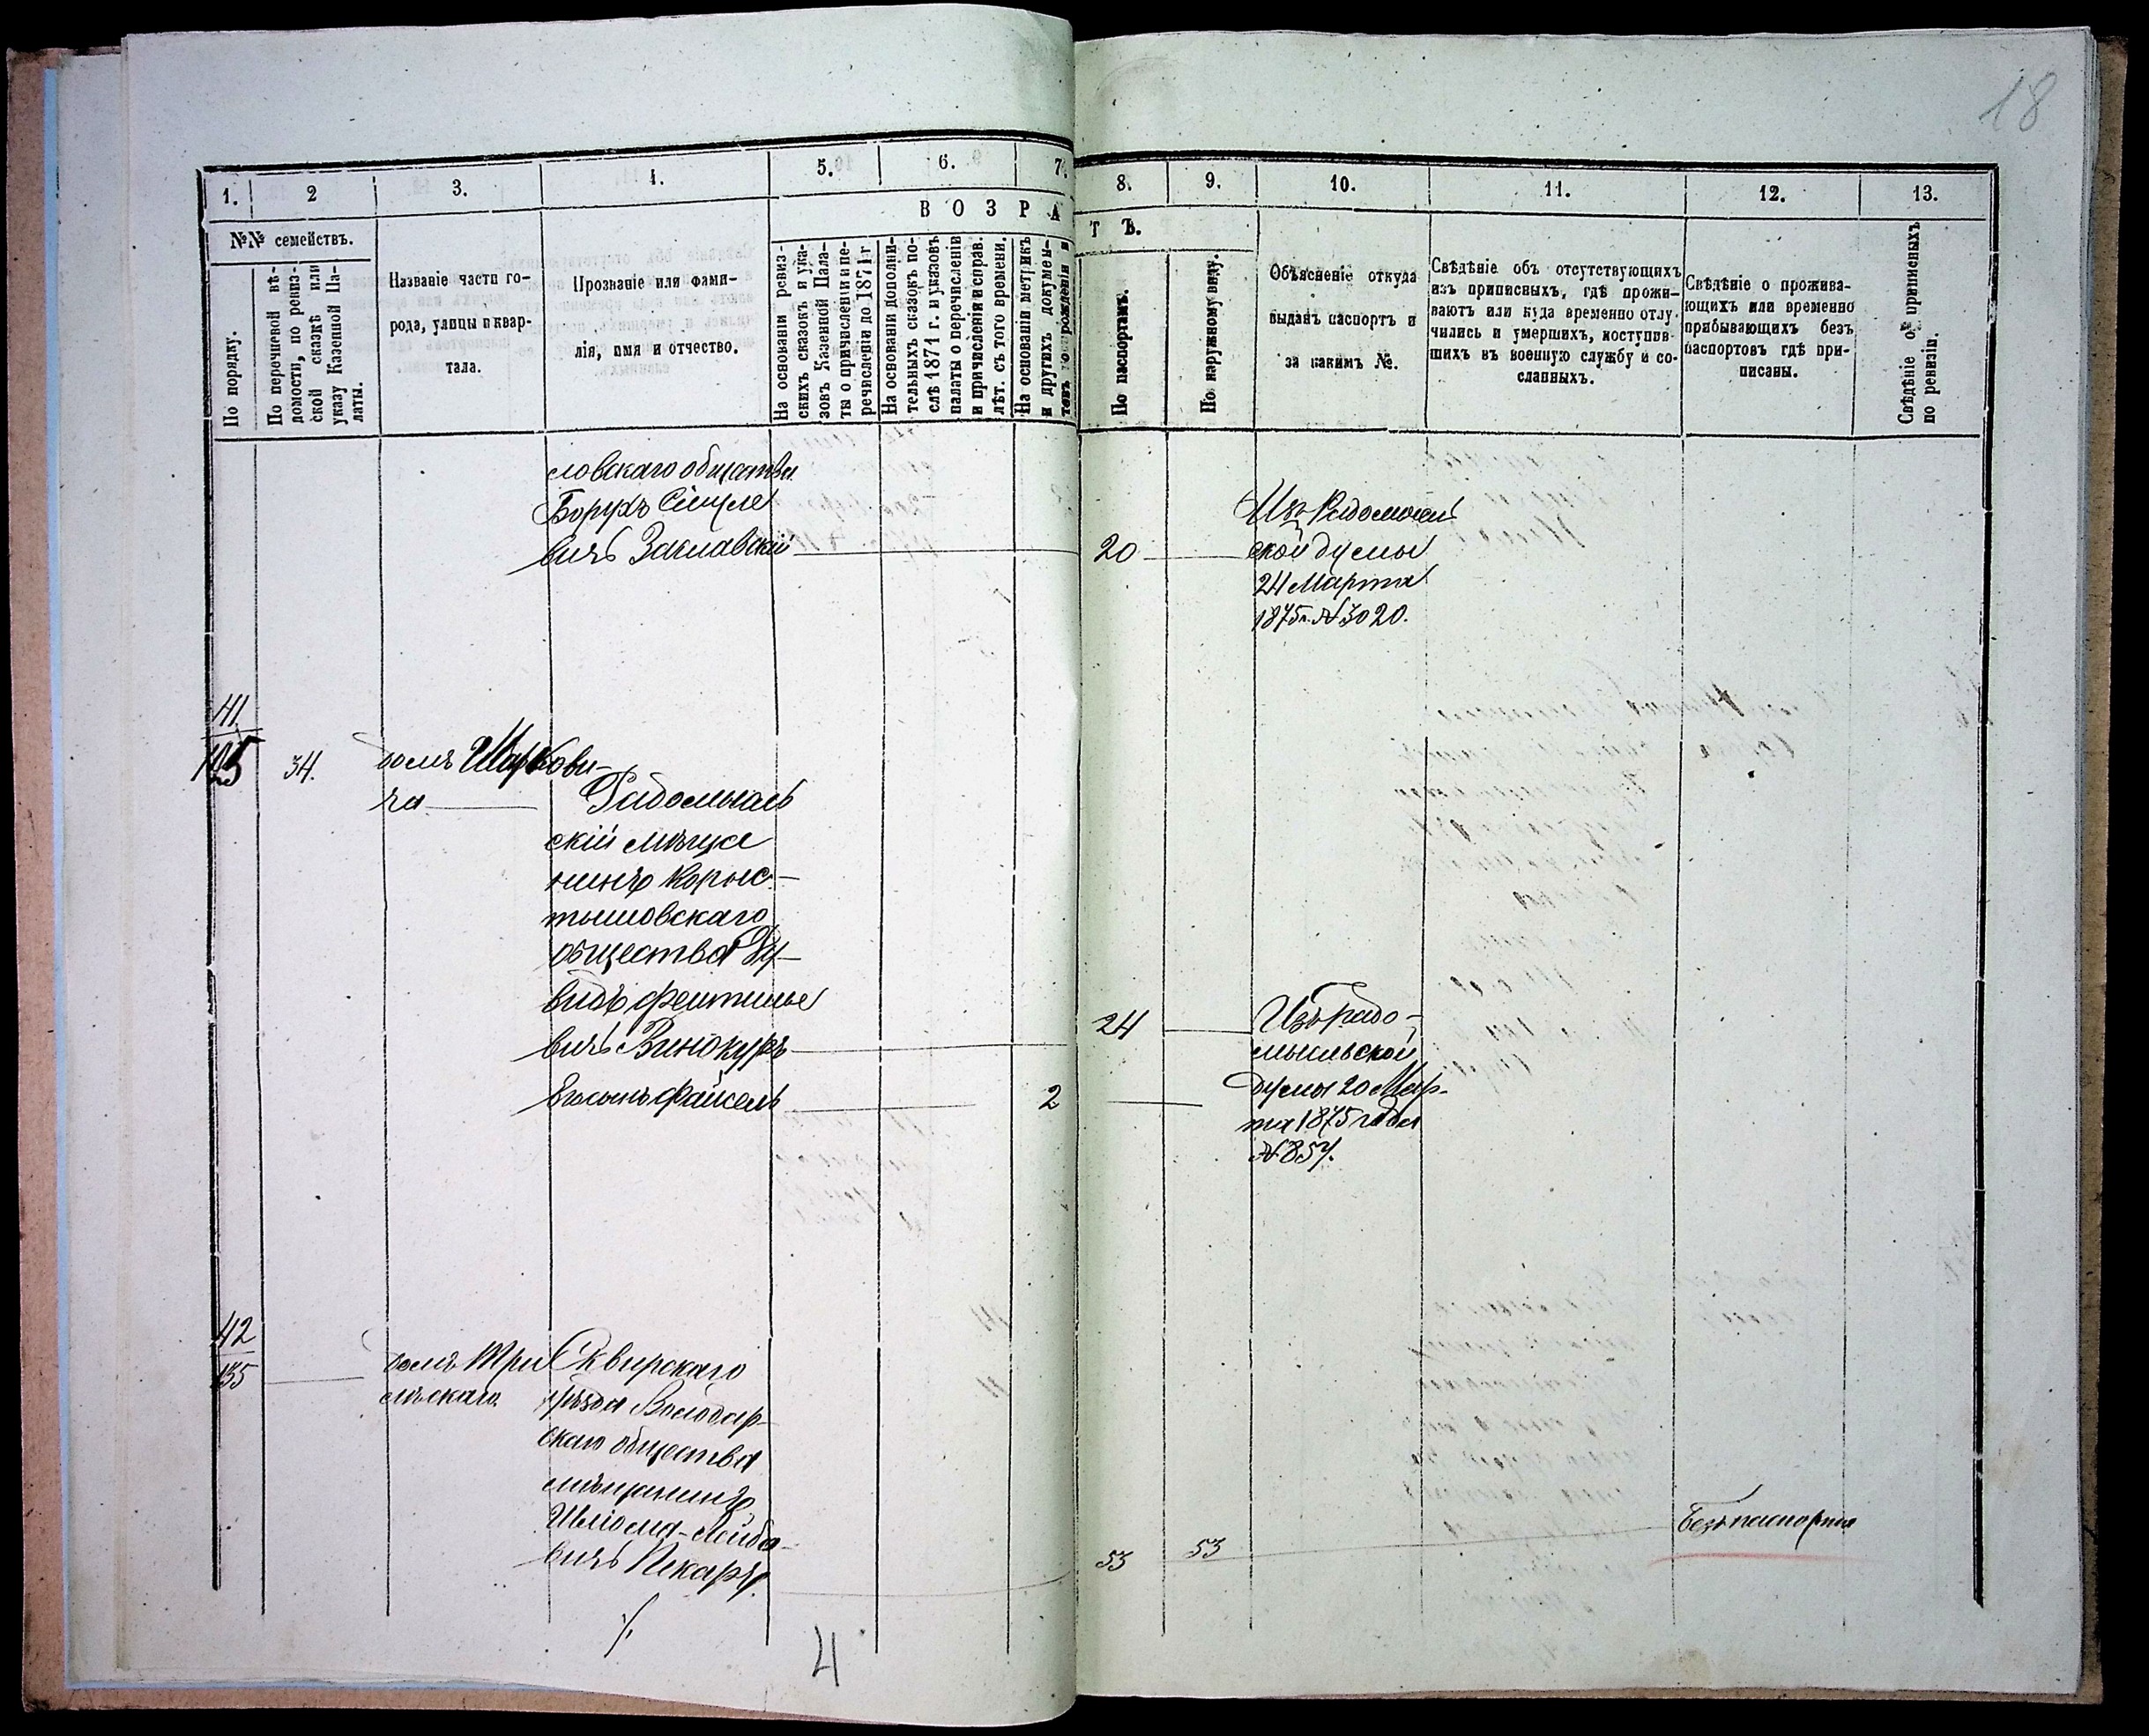 18
1.
2
3.
4.
5.
6.
7.
8.
9.
10.
11.
12.
13.
ВОЗРА
ТЪ.
№№ семействъ.
По порядку.
По перечневой вѣ-
домости, по ревиз-
ской сказкѣ или
указу Казенной Па-
латы.
Названіе части го-
рода, улицы и квар-
тала.
Прозваніе или фами-
лія, имя и отчество.
На основаніи ревиз-
скихъ сказокъ и ука-
зовъ Казенной Пала-
ты о причисленіи и пе-
речисленіи до 1871 г
На основаніи дополни-
тельныхъ сказокъ по-
слѣ 1871 г. и указовъ
палаты о перечисленіи
и причисленіи и исправ.
лѣт. съ того времени.
На основаніи метрикъ
и другихъ докумен-
товъ о рожденіи и
По паспортамъ.
По наружному виду.
Объясненіе откуда
выданъ паспортъ и
за какимъ №.
Свѣдѣніе объ отсутствующихъ
изъ приписныхъ, гдѣ прожи-
ваютъ или куда временно отлу-
чились и умершихъ, поступив-
шихъ въ военную службу и со-
сланныхъ.
Свѣдѣніе о прожива-
ющихъ или временно
прибывающихъ безъ
паспортовъ гдѣ при-
писаны.
Свѣдѣніе о приписныхъ
по ревизіи.
ловскаго общества
Борухъ Сімуле
вичъ Заславскій
20
Изъ Радомысль
ской думы
24 Марта
1875 г. № 3020.
41
34.
домъ Шаркови-
ча
Радомысль
скій мѣща
нинъ Корыс-
тышовскаго
общества Ду-
видъ Фештиле
вичъ Винокуръ
24
Изъ радо-
мысльской
думы 20 Мар-
та 1875 года
№ 857.
Его сынъ Файсель
2
42
135
домъ Три
лѣскаго
Сквирскаго
уѣзда Володар-
скаго общества
мѣщанинъ
Шлiома-Лейбо-
вичъ Пекаръ.
53
53
Безъ паспорта
4